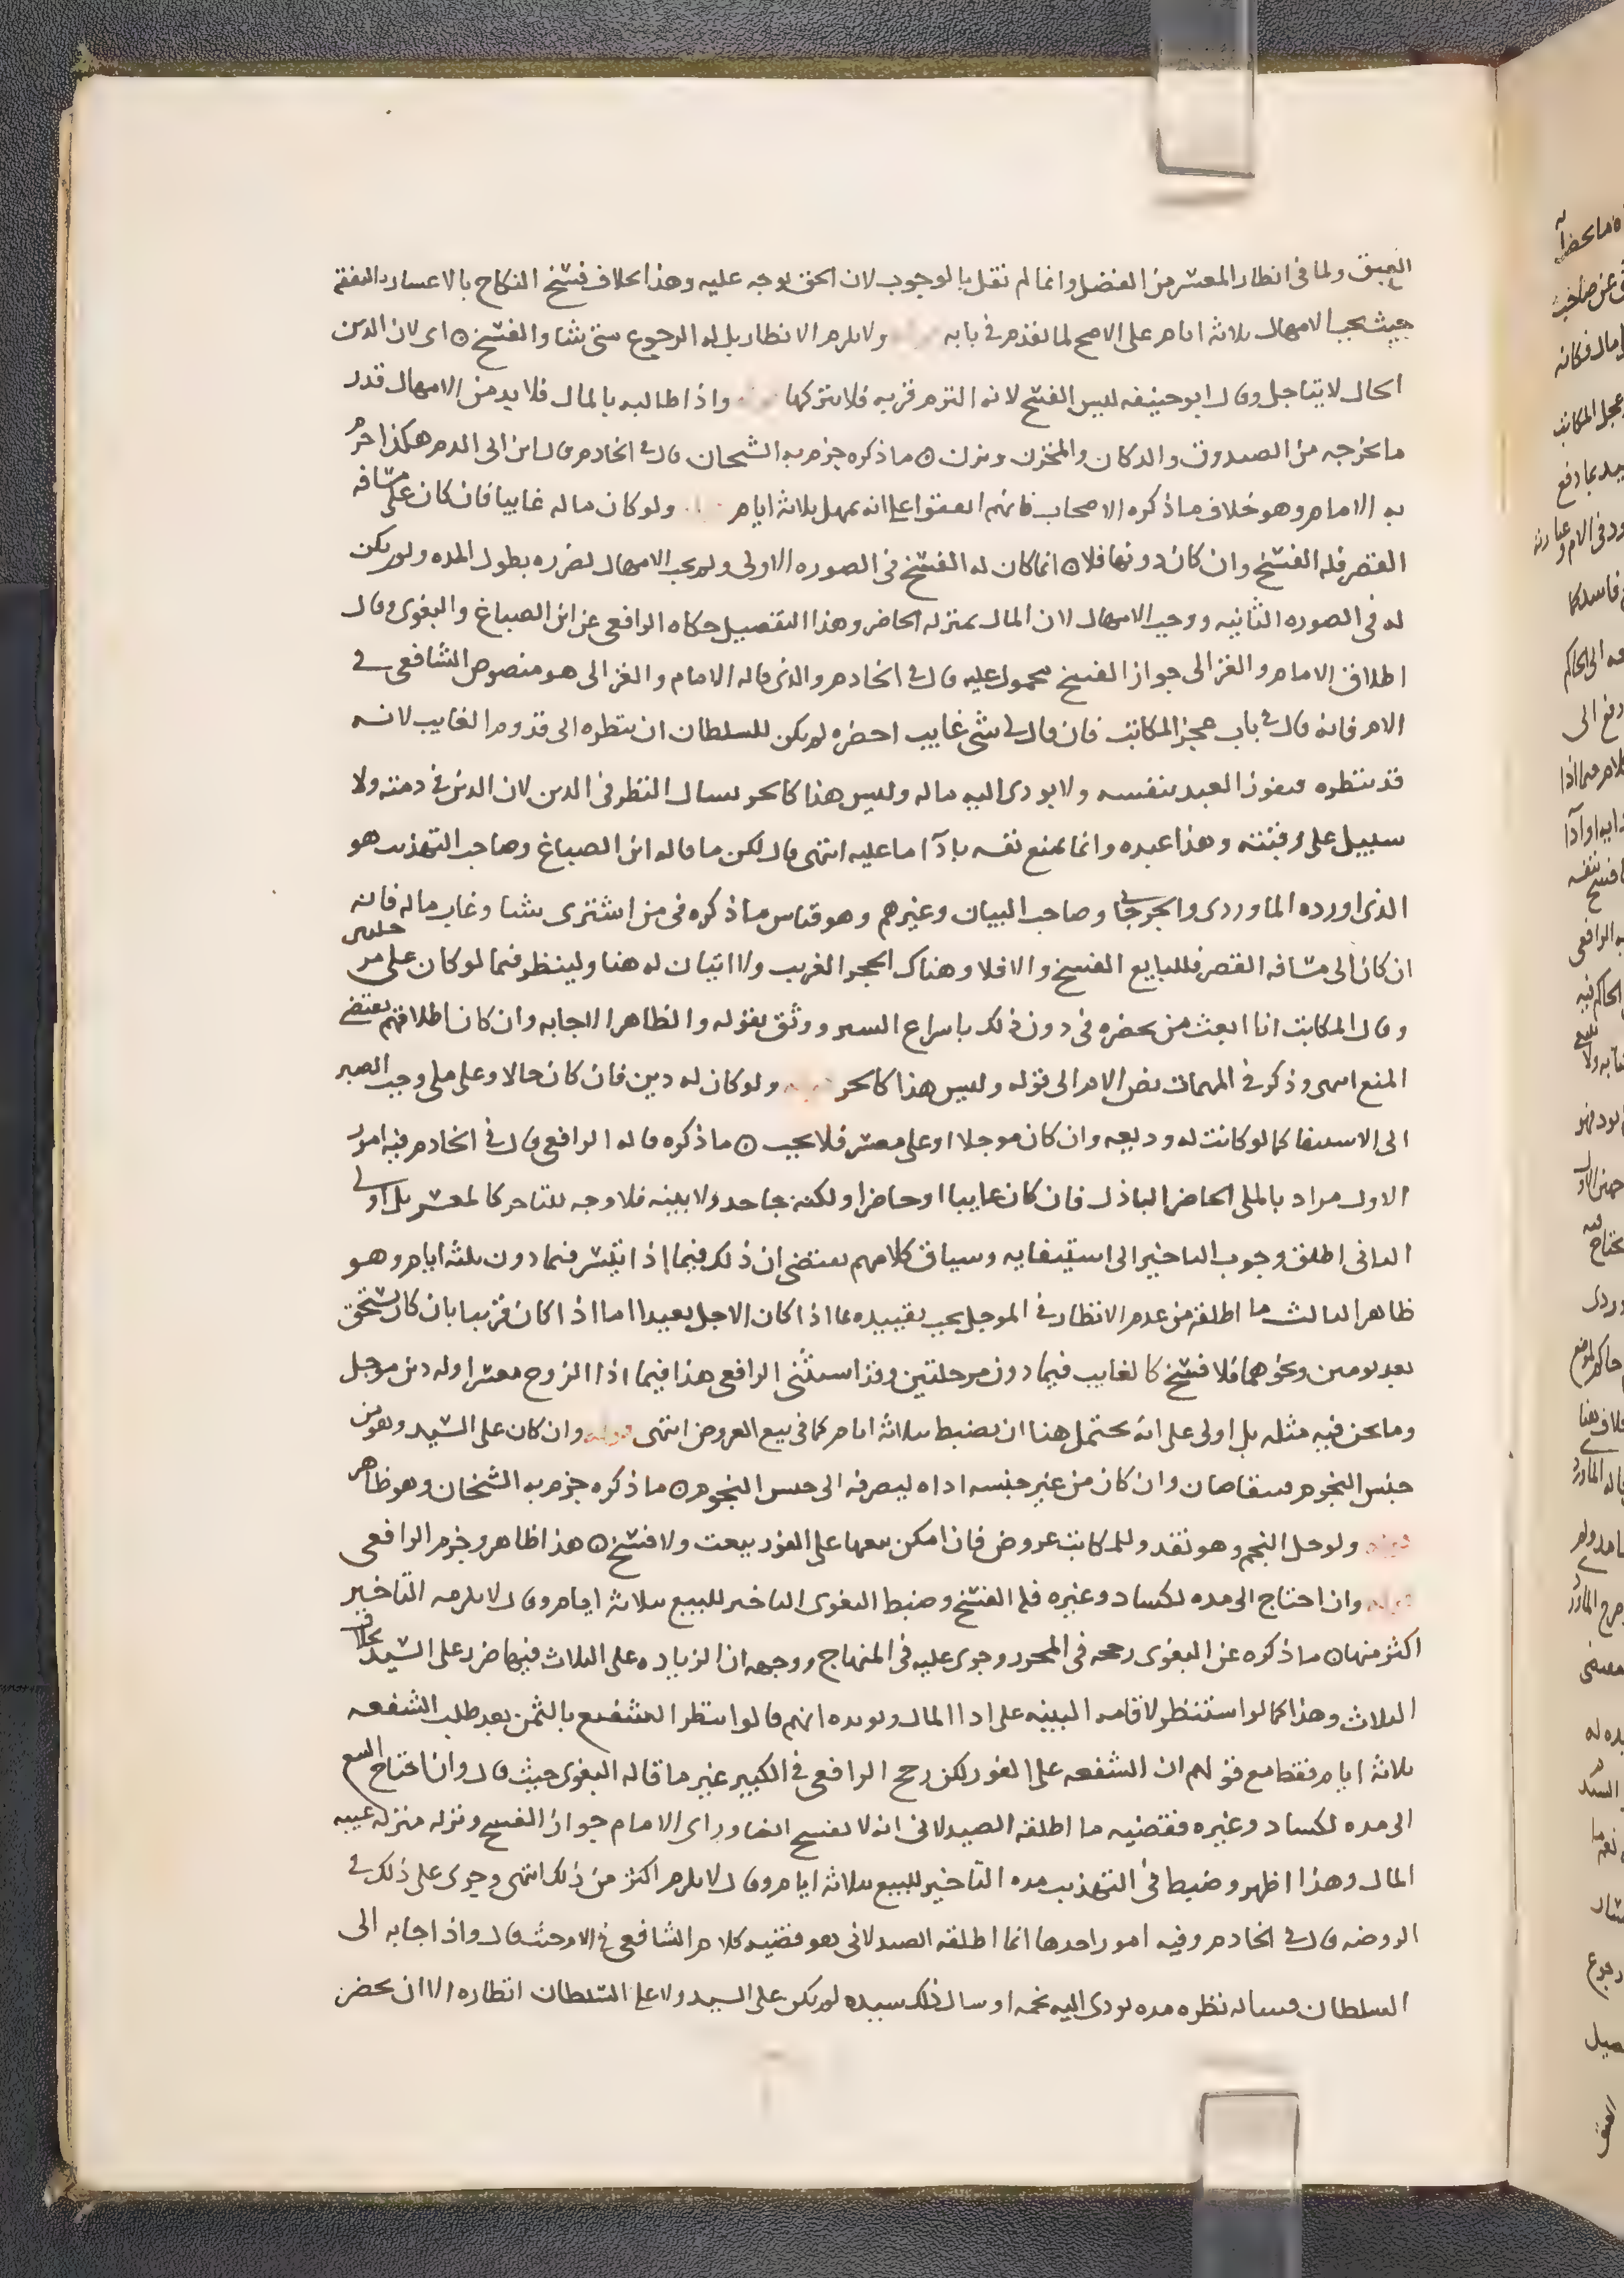 العتق ولما في انظار المعسر من الفضل وانما لم نقل بالوجوب لان الحق توجه عليه وهذا بخلاف فسخ النكاح بالاعسار بالنفقه
حيث يجب الامهال ثلاثة ايام على الاصح لما تقدم في بابه ولا يلزم الانظار بل له الرجوع متى شا والفسخ ۝ اى لان الدين
الحال لا يتاجل وقال ابو حنيفه ليس الفسخ لانه التزم قربه فلا يتركها واذا طالبه بالمال فلا بد من الامهال قدر
ما يخرجه من الصندوق والدكان والمخزن ويزن ۝ ما ذكره جزم به الشيخان قال في الخادم وقال ابن ابي الدم هكذا جزم
به الامام وهو خلاف ما ذكره الاصحاب فانهم اتفقوا على انه يمهل ثلاثة ايام ولو كان ماله غايبا فان كان على مسافه
القصر فله الفسخ وان كان دونها فلا ۝ انما كان له الفسخ في الصوره الاولى ولم يجب الامهال لضرره بطول المده ولم يكن
له في الصوره الثانيه ووجب الامهال لان المال بمنزله الحاضر وهذا التفصيل حكاه الرافعي عن ابن الصباغ والبغوى وقال
اطلاق الامام والغزالى جواز الفسخ محمول عليه قال في الخادم والذى قاله الامام والغزالى هو منصوص الشافعي في
الام فانه قال في باب عجز المكاتب فان قال لي شى غايب احضره لم يكن للسلطان ان ينظره الى قدوم الغايب لانه
قد ينظره فيفوت العبد بنفسه ولا يودى اليه ماله وليس هذا كالحر يسال النظر في الدين لان الدين في ذمته ولا
سبيل على رقبته وهذا عبده وانما يمنع نفسه بادآ ما عليه انتهى قال لكن ما قاله ابن الصباغ وصاحب التهذيب هو
الذى اورده الماوردى والجرجاني وصاحب البيان وغيرهم وهو قياس ما ذكره في من اشترى شيا وغاب ماله فانه
ان كان الى مسافه القصر فللبايع الفسخ والا فلا وهناك الحجر الغريب ولا اتيان له هنا ولينظر فيما لو كان على مرحلتين
وقال المكاتب انا ابعث من يحضره في دون ذلك باسراع السير ووثق بقوله والظاهر الاجابه وان كان اطلاقهم يقتضي
المنع انتهى وذكر في المهمات نص الام الى قوله وليس هذا كالحر ولو كان له دين فان كان حالا وعلى ملي وجب الصبر
الى الاستيفا كما لو كانت له وديعه وان كان موجلا او على معسر فلا يجب ۝ ما ذكره قاله الرافعي قال في الخادم فيه امور
الاول مراد بالملى الحاضر الباذل فان كان غايبا او حاضرا ولكنه جاحد ولا بينه فلا وجه للتاخر كالمعسر بل اولى
الثاني اطلق وجوب التاخير الى استيفايه وسياق كلامهم يقتضى ان ذلك فيما اذا تيسر فيما دون ثلثه ايام وهو
ظاهر الثالث ما اطلقه من عدم الانظار في الموجل يجب تقييده بما اذا كان الاجل بعيدا اما اذا كان قريبا بان كان يستحق
بعد يومين ونحوهما فلا فسخ كالغايب فيما دون مرحلتين وقد استثنى الرافعي هذا فيما اذا الزوج معسرا وله دين موجل
وما نحن فيه مثله بل اولى على انه يحتمل هنا ان يضبط بثلاثة ايام كما في بيع العروض انتهى قوله وان كان على السيد وهو من
جنس النجوم فيتقاصان وان كان من غير جنسه اداه ليصرفه الى جنس النجوم ۝ ما ذكره جزم به الشيخان وهو ظاهر
قوله ولو حل النجم وهو نقد وللمكاتب عروض فان امكن بيعها على الفور بيعت ولا فسخ ۝ هذا ظاهر وجزم الرافعي
قوله وان احتاج الى مده لكساد وغيره فله الفسخ وضبط البغوى التاخير للبيع بثلاثة ايام وقال لا يلزمه التاخير
اكثر منها ۝ ما ذكره عن البغوى رجحه في المحرر وجرى عليه في المنهاج ووجهه ان الزياده على الثلاث فيها ضرر على السيد بخلاف
الثلاث وهذا كما لو استنظر لاقامه البينه على ادا المال ويويده انهم قالوا ينظر الشفيع بالثمن بعد طلب الشفعه
ثلاثة ايام فقط مع قولهم ان الشفعه على الفور لكن رجح الرافعي في الكبير غير ما قاله البغوى حيث قال وان احتاج البيع
الى مده لكساد وغيره فقضيه ما اطلقه الصيدلاني انه لا يفسخ ايضا وراى الامام جواز الفسخ ونزله منزله غيبه
المال وهذا اظهر وضبط في التهذيب مده التاخير للبيع بثلاثة ايام وقال لا يلزم اكثر من ذلك انتهى وجرى على ذلك في
الروضه قال في الخادم وفيه امور احدها انما اطلقه الصيدلاني هو قضيه كلام الشافعي في الام حيث قال واذا جا به الى
السلطان فساله نظره مده يودى اليه نجمه او سال ذلك سيده لم يكن على السيد ولا على السلطان انظاره الا ان يحضر